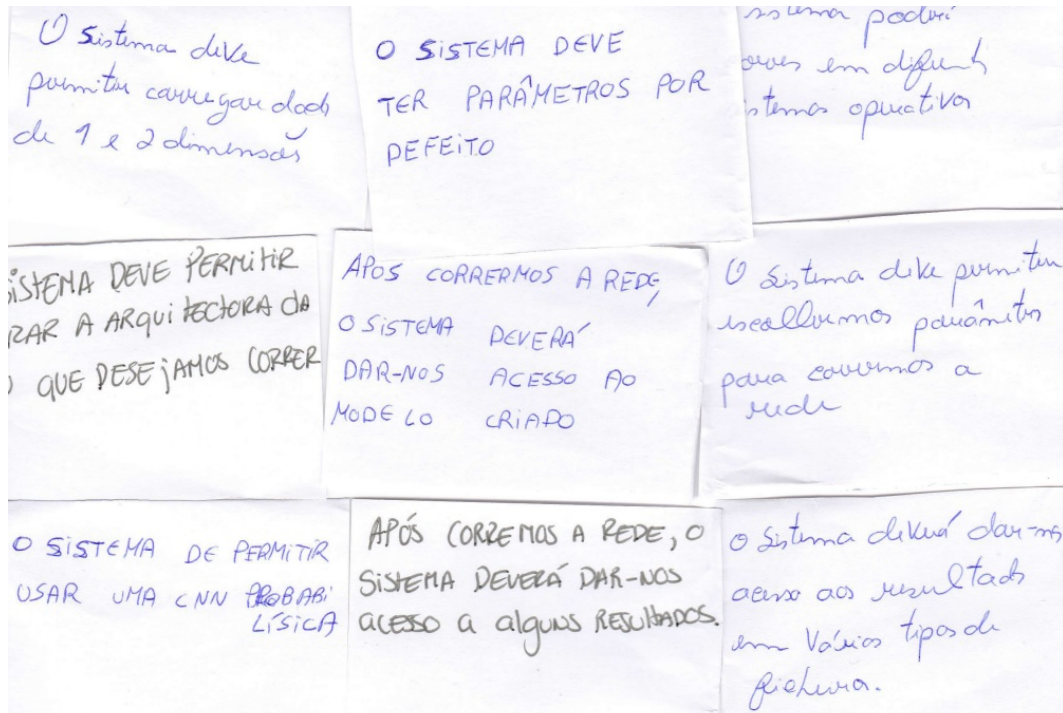 O Sistema deve
permitir carregar dados
de 1 e 2 dimensões
O SISTEMA DEVE
TER PARÂMETROS POR
DEFEITO
sistema poderá
em diferents
sistemas operativos
SISTEMA DEVE PERMITIR
A ARQUITECTORA DA
QUE DESEJAMOS CORRER
APOS CORRERMOS A REDE,
O SISTEMA DEVERÁ
DAR-NOS ACESSO AO
MODELO CRIADO
O Sistema deve permitir
escolhermos parâmetros
para corrermos a
rede
O SISTEMA DE PERMITIR
USAR UMA CNN PROBABI
LÍSICA
APÓS CORREMOS A REDE, O
SISTEMA DEVERÁ DAR-NOS
ACESSO A alguns RESULTADOS.
O Sistema deverá dar-nos
acesso aos resultados
em Vários tipos de
ficheiros.